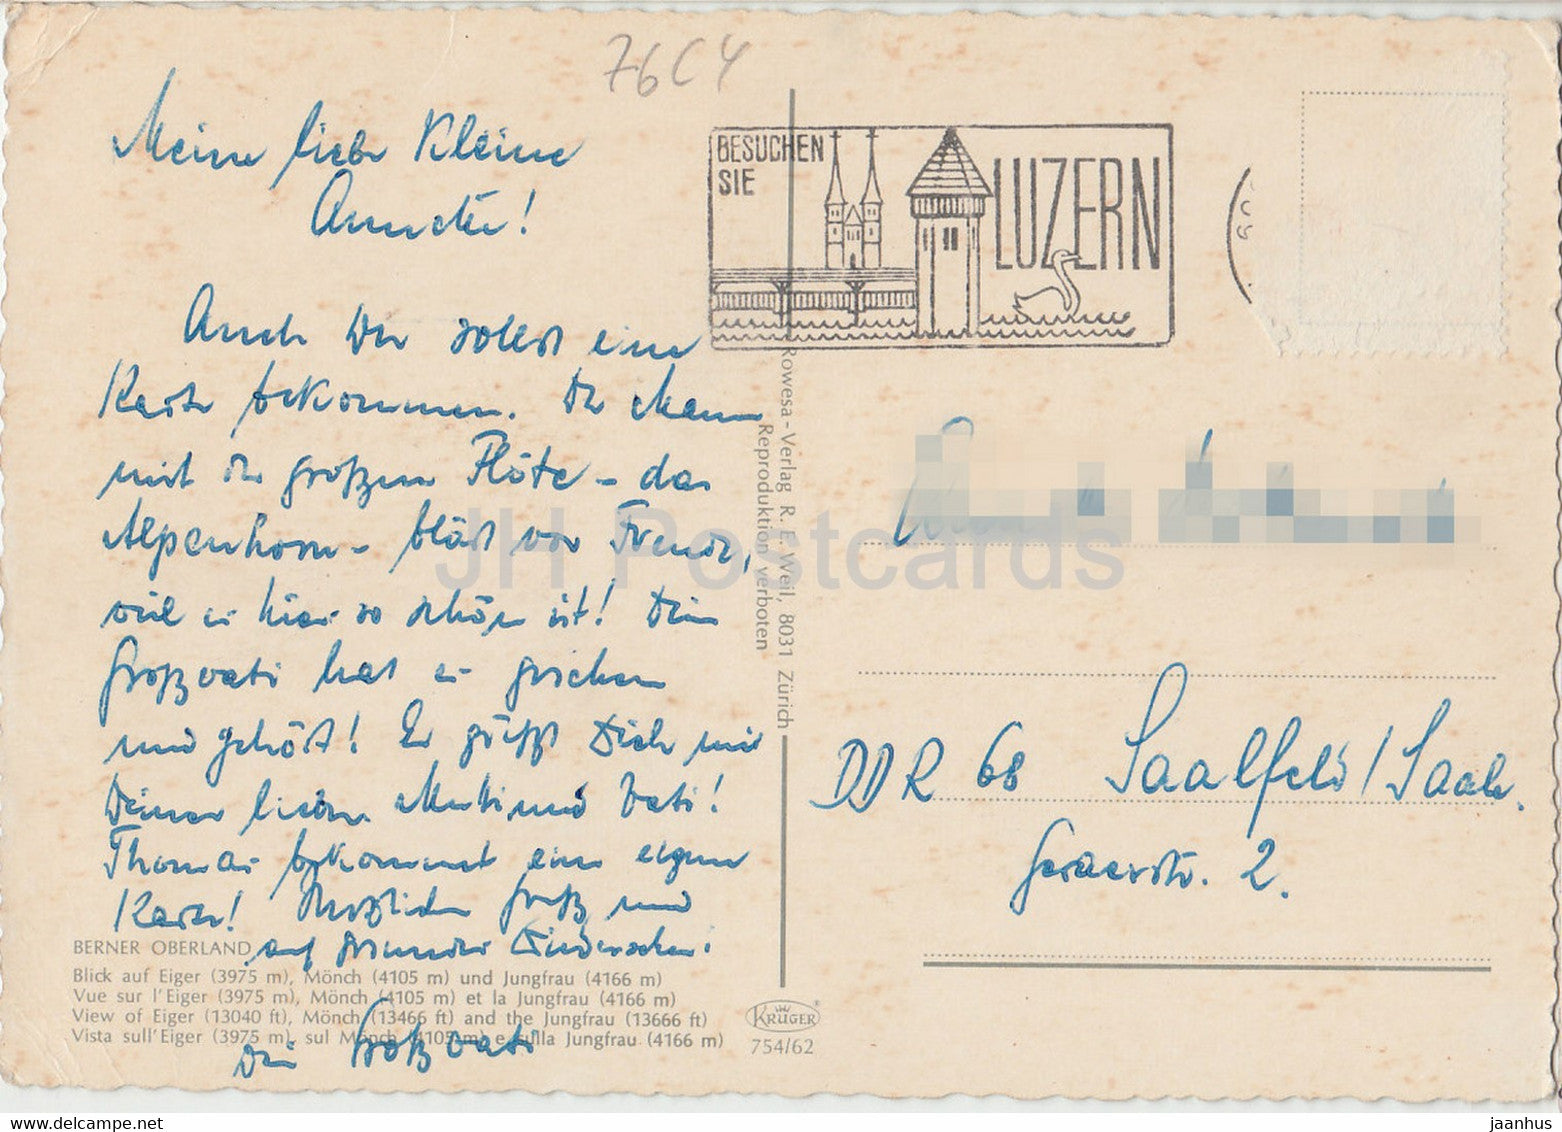 76C4
Meine liebe kleine
Annette!
Auch Du sollst eine
Karte bekommen. Der Mann
mit der großen Flöte – das
Alpenhorn – bläst vor Freude,
weil es hier so schön ist! Dein
Großvati hat es gesehen
und gehört! Er grüßt Dich mit
Deiner lieben Mutti und Vati!
Thomas bekommt eine eigene
Karte! Herzlichen Gruß und
auf gesundes Wiedersehen!
Dein Großvati
BERNER OBERLAND
Blick auf Eiger (3975 m), Mönch (4105 m) und Jungfrau (4166 m)
Vue sur l'Eiger (3975 m), Mönch (4105 m) et la Jungfrau (4166 m)
View of Eiger (13040 ft), Mönch (13466 ft) and the Jungfrau (13666 ft)
Vista sull'Eiger (3975 m), sul Mönch (4105 m) e sulla Jungfrau (4166 m)
BESUCHEN
SIE
LUZERN
Rowesa - Verlag R. E. Weil, 8031 Zürich
Reproduktion verboten
DDR 68 Saalfeld/Saale.
Geraerstr. 2.
KRÜGER®
754/62
JH Postcards
www.delcampe.net
jaanhus